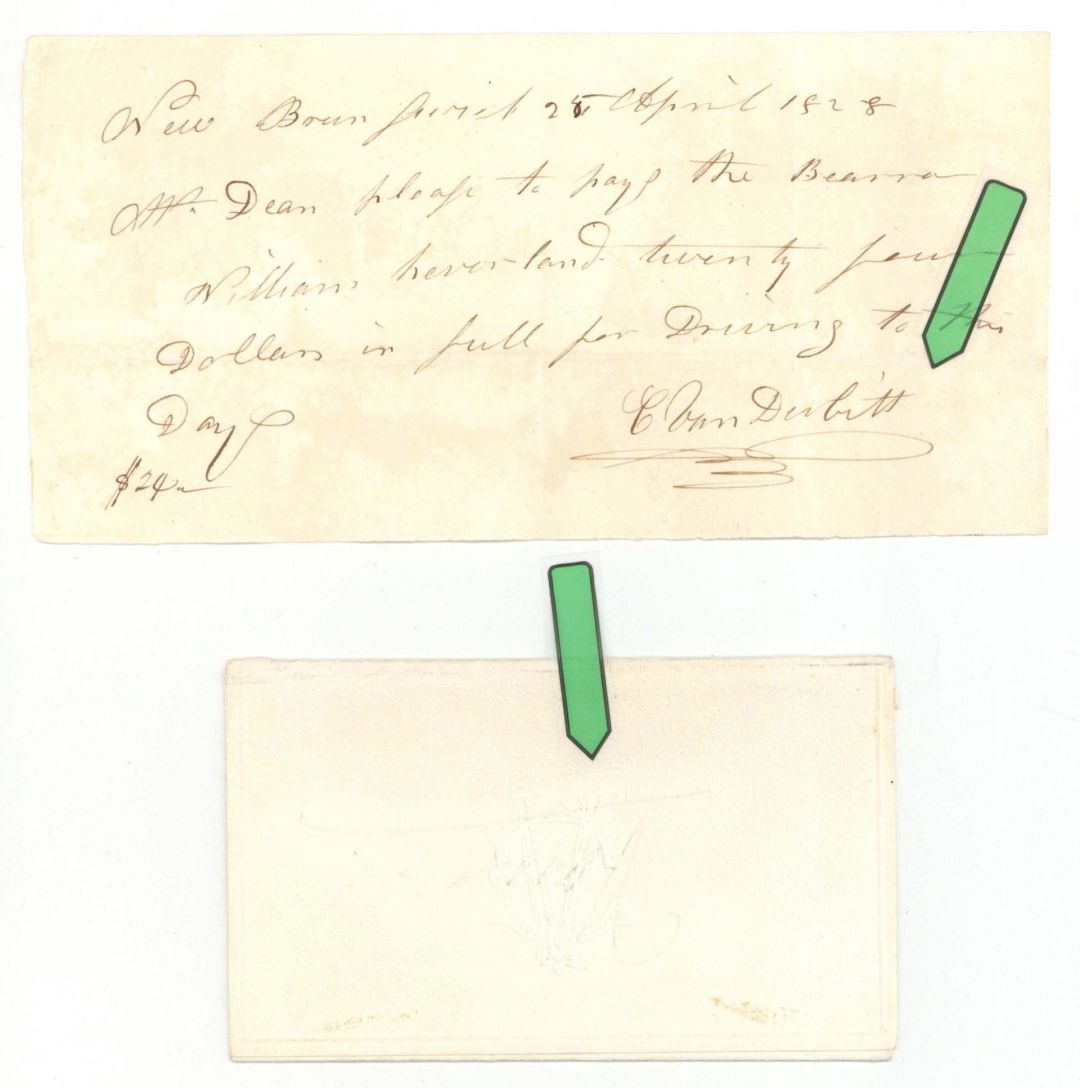 New Brun swick 25 April 1828
Mr. Dean please to paye the Bearra
William heverland twenty four
Dollars in full for Driving to this
Daye
$24
C Van Derbilt